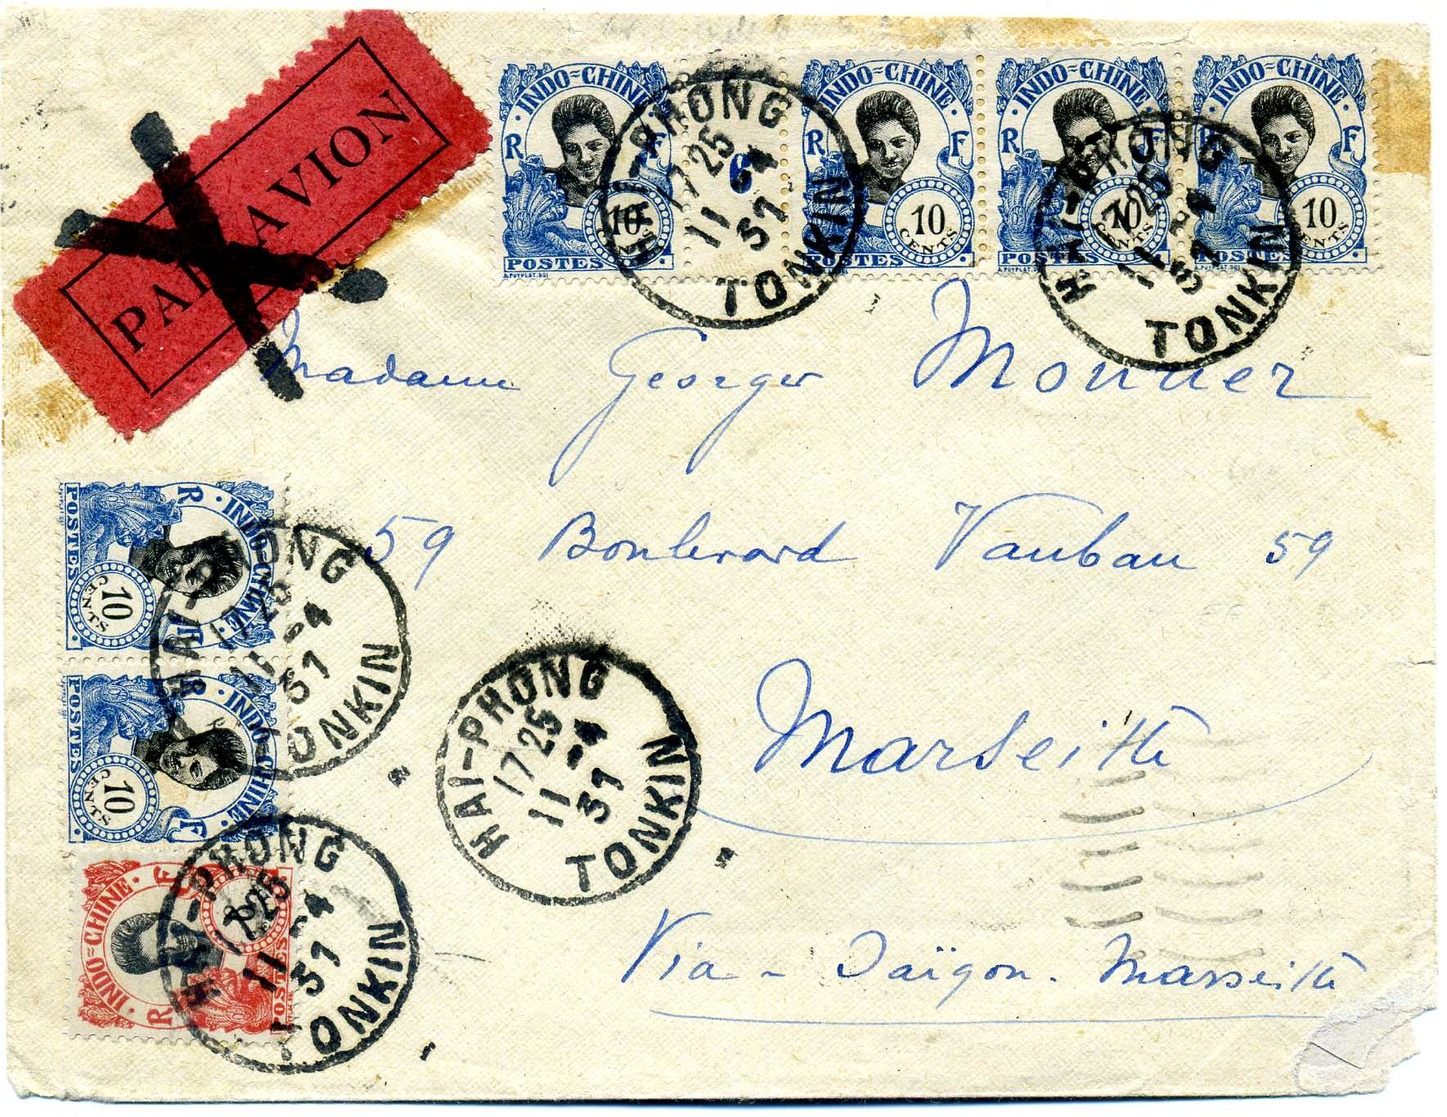 PAR AVION
INDO=CHINE
R F
10
CENTS
POSTES
A.PUYPLAT.DEL
6
INDO=CHINE
R F
10
CENTS
POSTES
A.PUYPLAT.DEL
INDO=CHINE
R F
10
CENTS
POSTES
A.PUYPLAT.DEL
INDO=CHINE
R F
10
CENTS
POSTES
A.PUYPLAT.DEL
HAI-PHONG
17 25
11 -4
37
TONKIN
HAI-PHONG
17 25
11 -4
37
TONKIN
Madame Georges Monnier
59 Boulevard Vauban 59
Marseille
Via - Saïgon. Marseille
INDO=CHINE
R F
10
CENTS
POSTES
HAI-PHONG
17 25
11 -4
37
TONKIN
INDO=CHINE
R F
10
CENTS
POSTES
HAI-PHONG
17 25
11 -4
37
TONKIN
INDO=CHINE
R F
POSTES
HAI-PHONG
17 25
11 -4
37
TONKIN